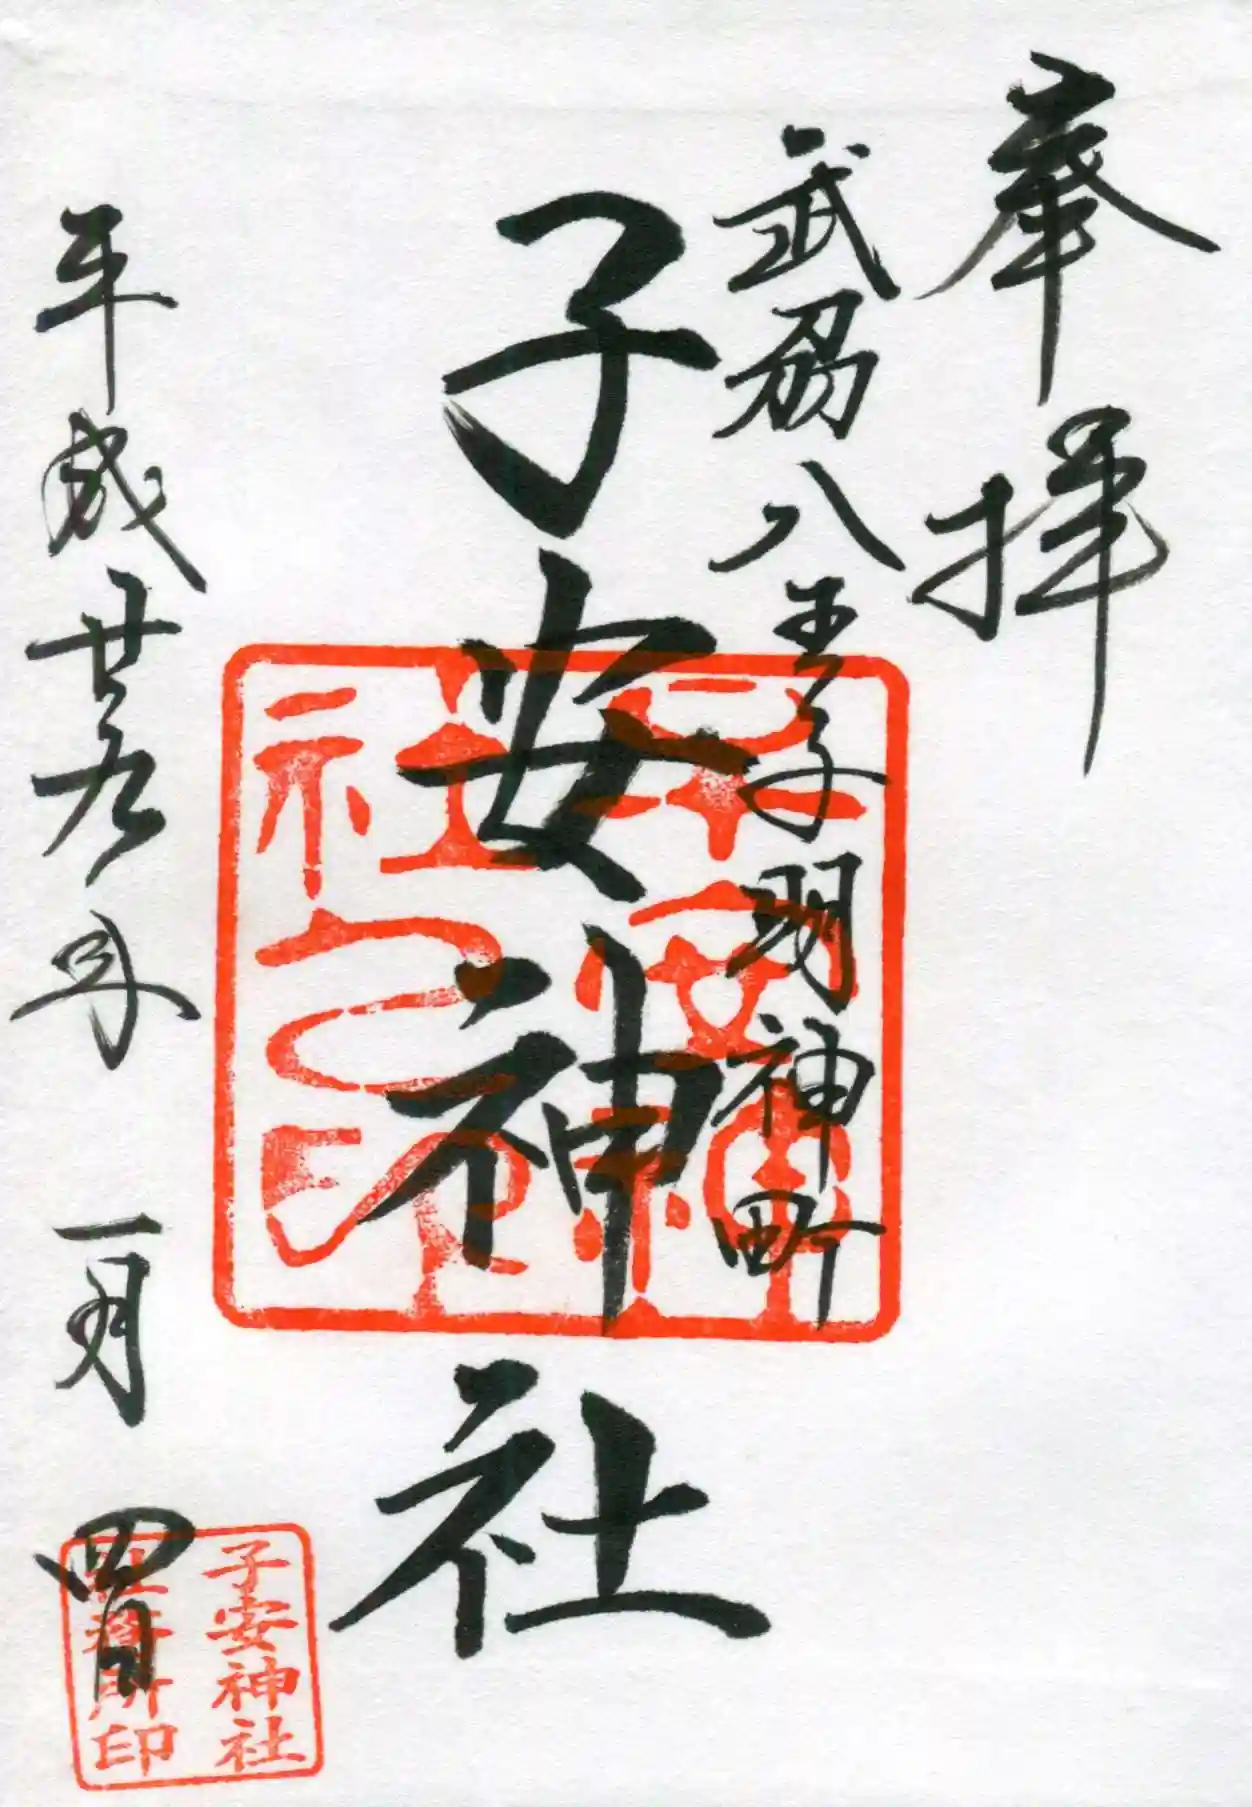 奉拝
武州八王子明神町
子安神社
平成廿九年一月四日
子安神社之印
子安神社
社務所印